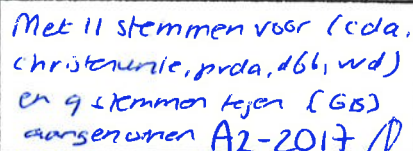 Met 11 stemmen voor (cda,
christenunie, pvda, d66, vvd)
en 9 stemmen tegen (GB)
aangenomen A2-2017